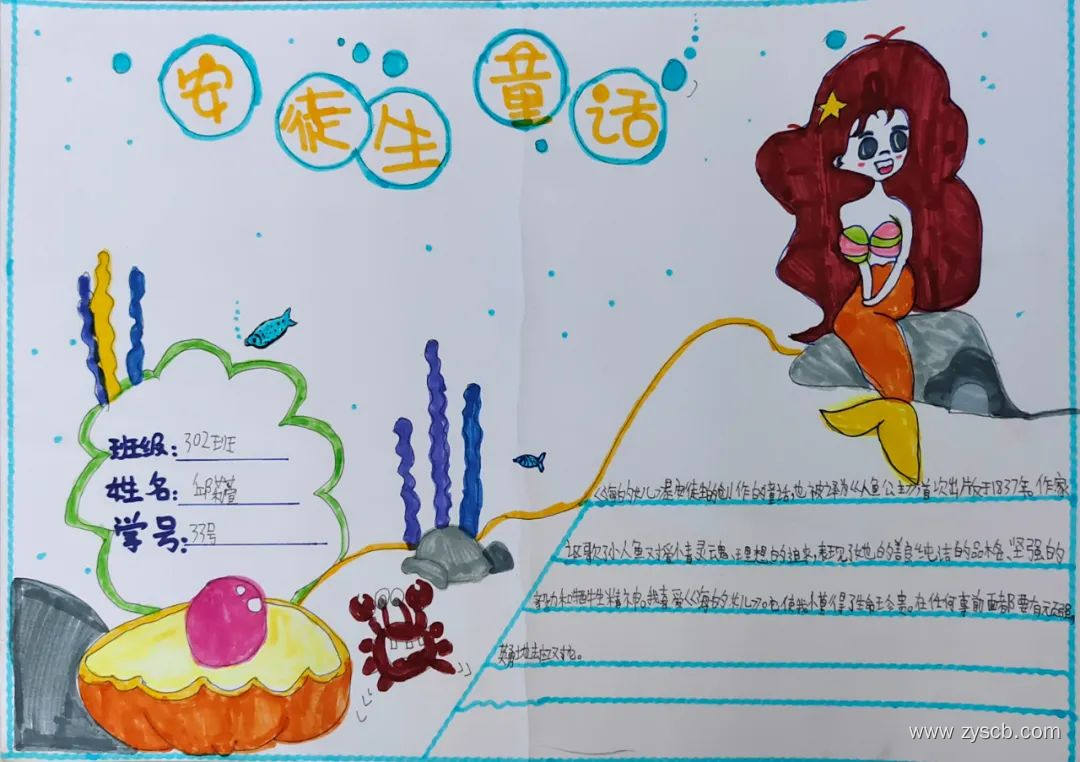 安徒生童话
班级：302班
姓名：邱莉萱
学号：33号
《海的女儿》是安徒生创作的童话，也被译为《人鱼公主》首次出片反于1837年。作家
讴歌了小人鱼对爱小青灵魂、王里想的追求，表现了她的善良纯洁的品格、坚强的
毅力和牺牲精久申。我喜爱《海的女儿》。也使我懂得了生命宝贵。在任何事前面都要
英勇地去应对她。
www.zyscb.com